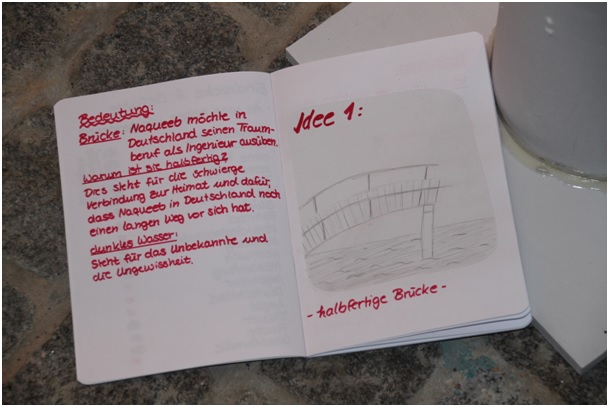 Bedeutung:
Brücke: Naqueeb möchte in
Deutschland seinen Traum-
beruf als Ingenieur ausüben.
Warum ist sie halbfertig?
Dies steht für die schwierge
Verbindung zur Heimat und dafür,
dass Naqueeb in Deutschland noch
einen langen Weg vor sich hat.
dunkles Wasser:
Steht für das Unbekannte und
die Ungewissheit.
Idee 1:
- halbfertige Brücke -